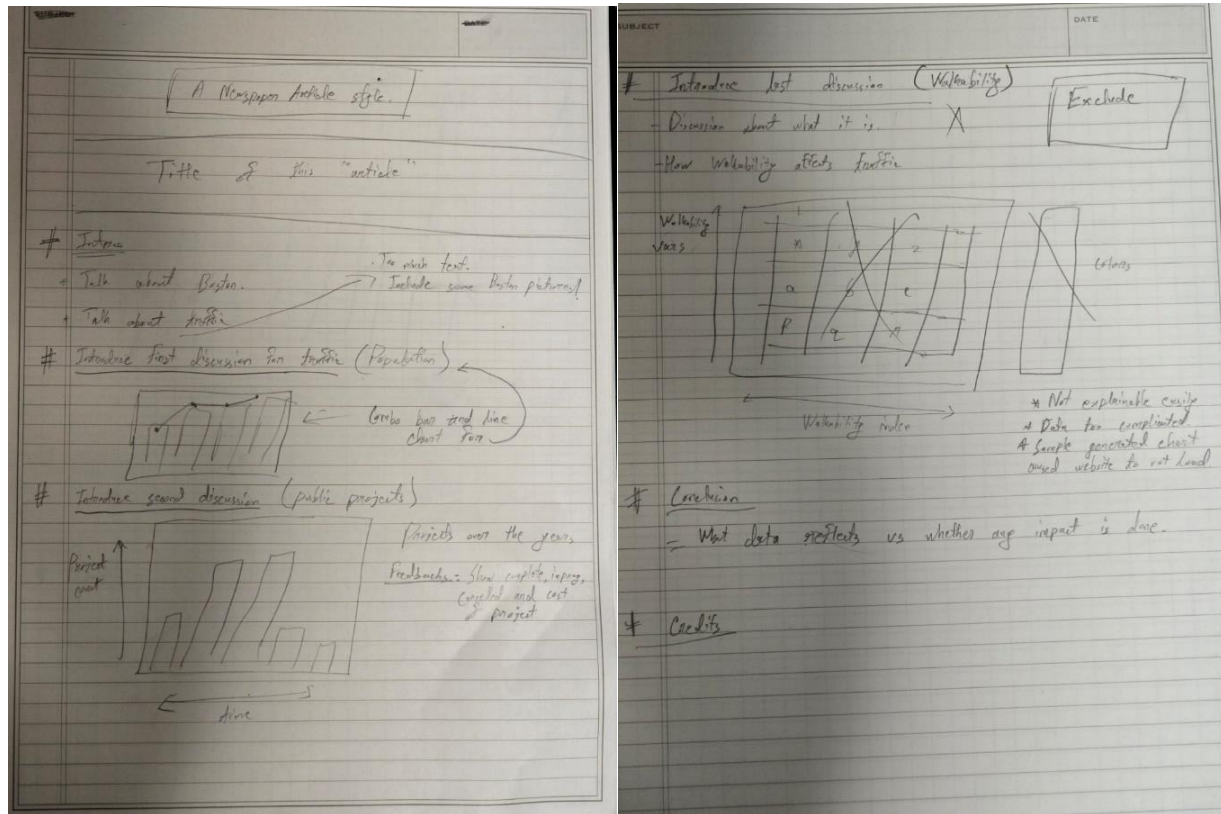 SUBJECT
DATE
A Newspaper Article style.
Title of this "article"
# Intro
- Talk about Boston.
- Talk about traffic
. Too much text.
Include some Boston pictures!
# Introduce First discussion for traffic (Population)
Combo bar and line
chart for
# Introduce second discussion (public projects)
Project
count
time
Projects over the years
Feedbacks: Show complete,
canceled and cost
of project
SUBJECT
DATE
# Introduce last discussion (Walkability)
Exclude
- Discussion about what it is.
- How Walkability affects traffic
Walkability
x y z
a b c
p q r
Colors
Walkability index
* Not explainable easily
* Data too complicated
* Sample generated chart
caused website to not load
# Conclusion
= What data reflects vs whether any impact is done.
# Credits